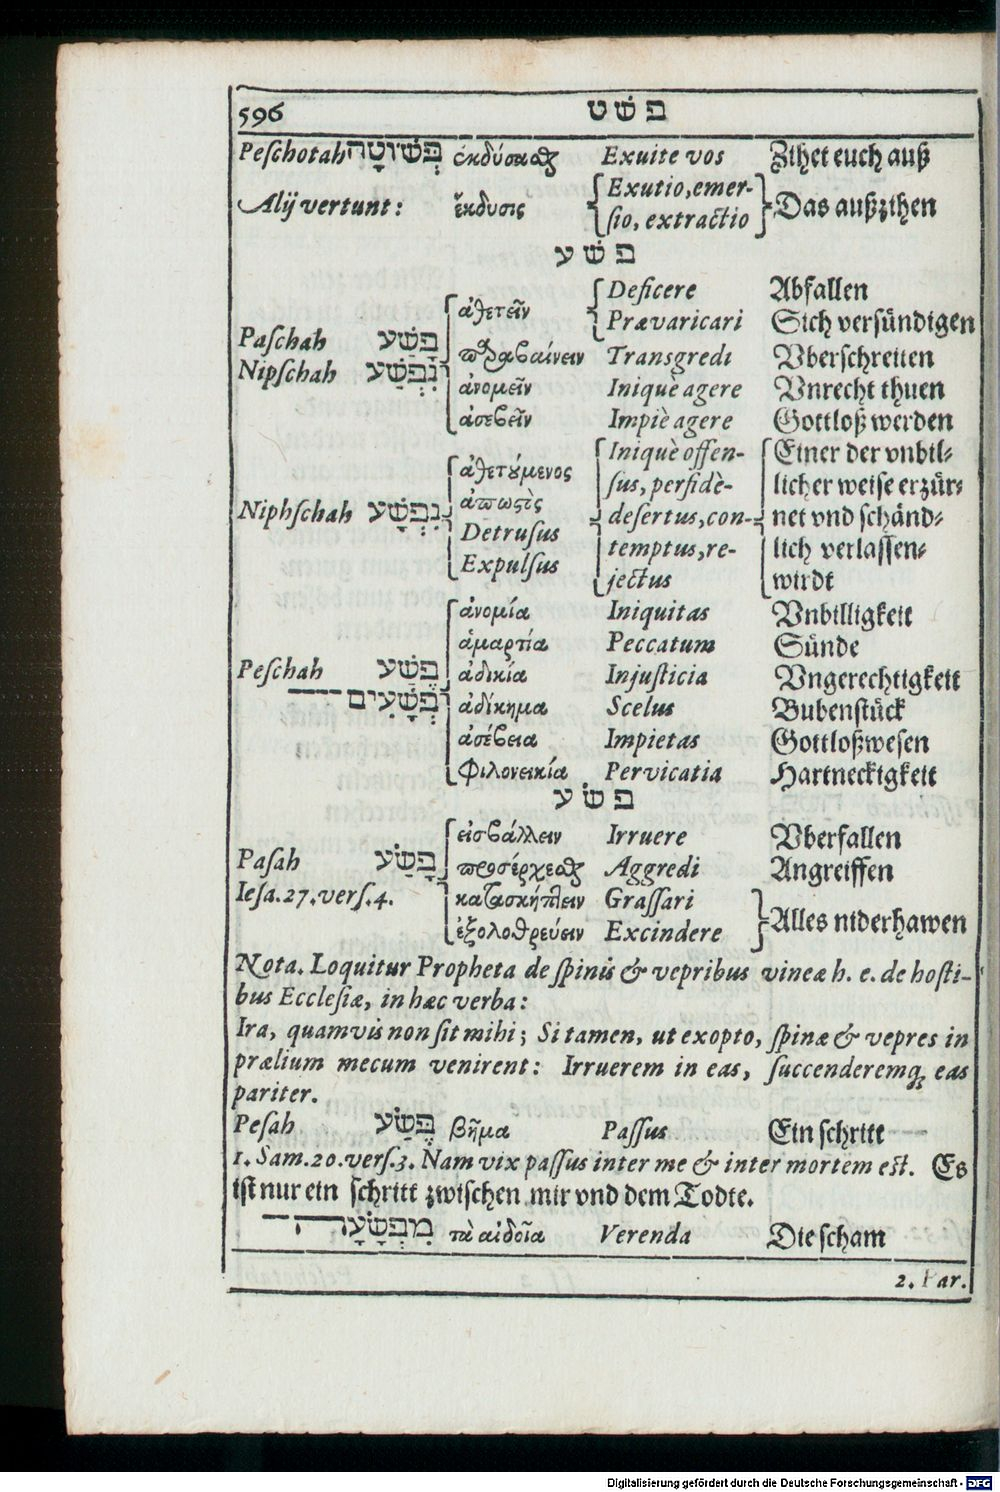 596 פשׁט
Peſchotah פְּשׁוּטָה ἐκδύσαθε Exuite vos Zihet euch auß
Exutio, emer-
Alij vertunt: ἔκδυσις Das außzihen
ſio, extractio
פשׁע
Deficere Abfallen
ἀθετεῖν
Prævaricari Sich verſündigen
Paſchah פָּשַׁע
παραβαίνειν Transgredi Vberſchreiten
Nipſchah נִפְשַׁע
ἀνομεῖν Iniquè agere Vnrecht thuen
ἀσεβεῖν Impiè agere Gottloß werden
Iniquè offen- Einer der vnbil-
ἀθετούμενος ſus, perfidè- licher weiſe erzür-
Niphſchah נִפְשָׁע ἀπωστὸς deſertus, con- net vnd ſchänd-
Detruſus temptus, re- lich verlaſſen-
Expulſus jectus wirdt
ἀνομία Iniquitas Vnbilligkeit
ἁμαρτία Peccatum Sünde
Peſchah פֶּשַׁע ἀδικία Injuſticia Vngerechtigkeit
פְּשָׁעִים ἀδίκημα Scelus Bubenſtück
ἀσέβεια Impietas Gottloßweſen
Φιλονεικία Pervicatia Hartneckigkeit
פשׂע
εἰσβάλλειν Irruere Vberfallen
Paſah פָּשַׂע προσέρχεσθαι Aggredi Angreiffen
Ieſa. 27. verſ. 4. κατασκήπτειν Graſſari
Alles niderhawen
ἐξολοθρεύειν Excindere
Nota. Loquitur Propheta de ſpinis & vepribus vineæ h. e. de hoſti-
bus Eccleſiæ, in hæc verba:
Ira, quamvis non ſit mihi; Si tamen, ut exopto, ſpinæ & vepres in
prælium mecum venirent: Irruerem in eas, ſuccenderemq; eas
pariter.
Peſah פֶּשַׂע βῆμα Paſſus Ein ſchritt
1. Sam. 20. verſ. 3. Nam vix paſſus inter me & inter mortem eſt. Es
iſt nur ein ſchritt zwiſchen mir vnd dem Todte.
מִפְשָׂעָה τὰ αἰδοῖα Verenda Die ſcham
2. Par.
Digitalisierung gefördert durch die Deutsche Forschungsgemeinschaft - DFG